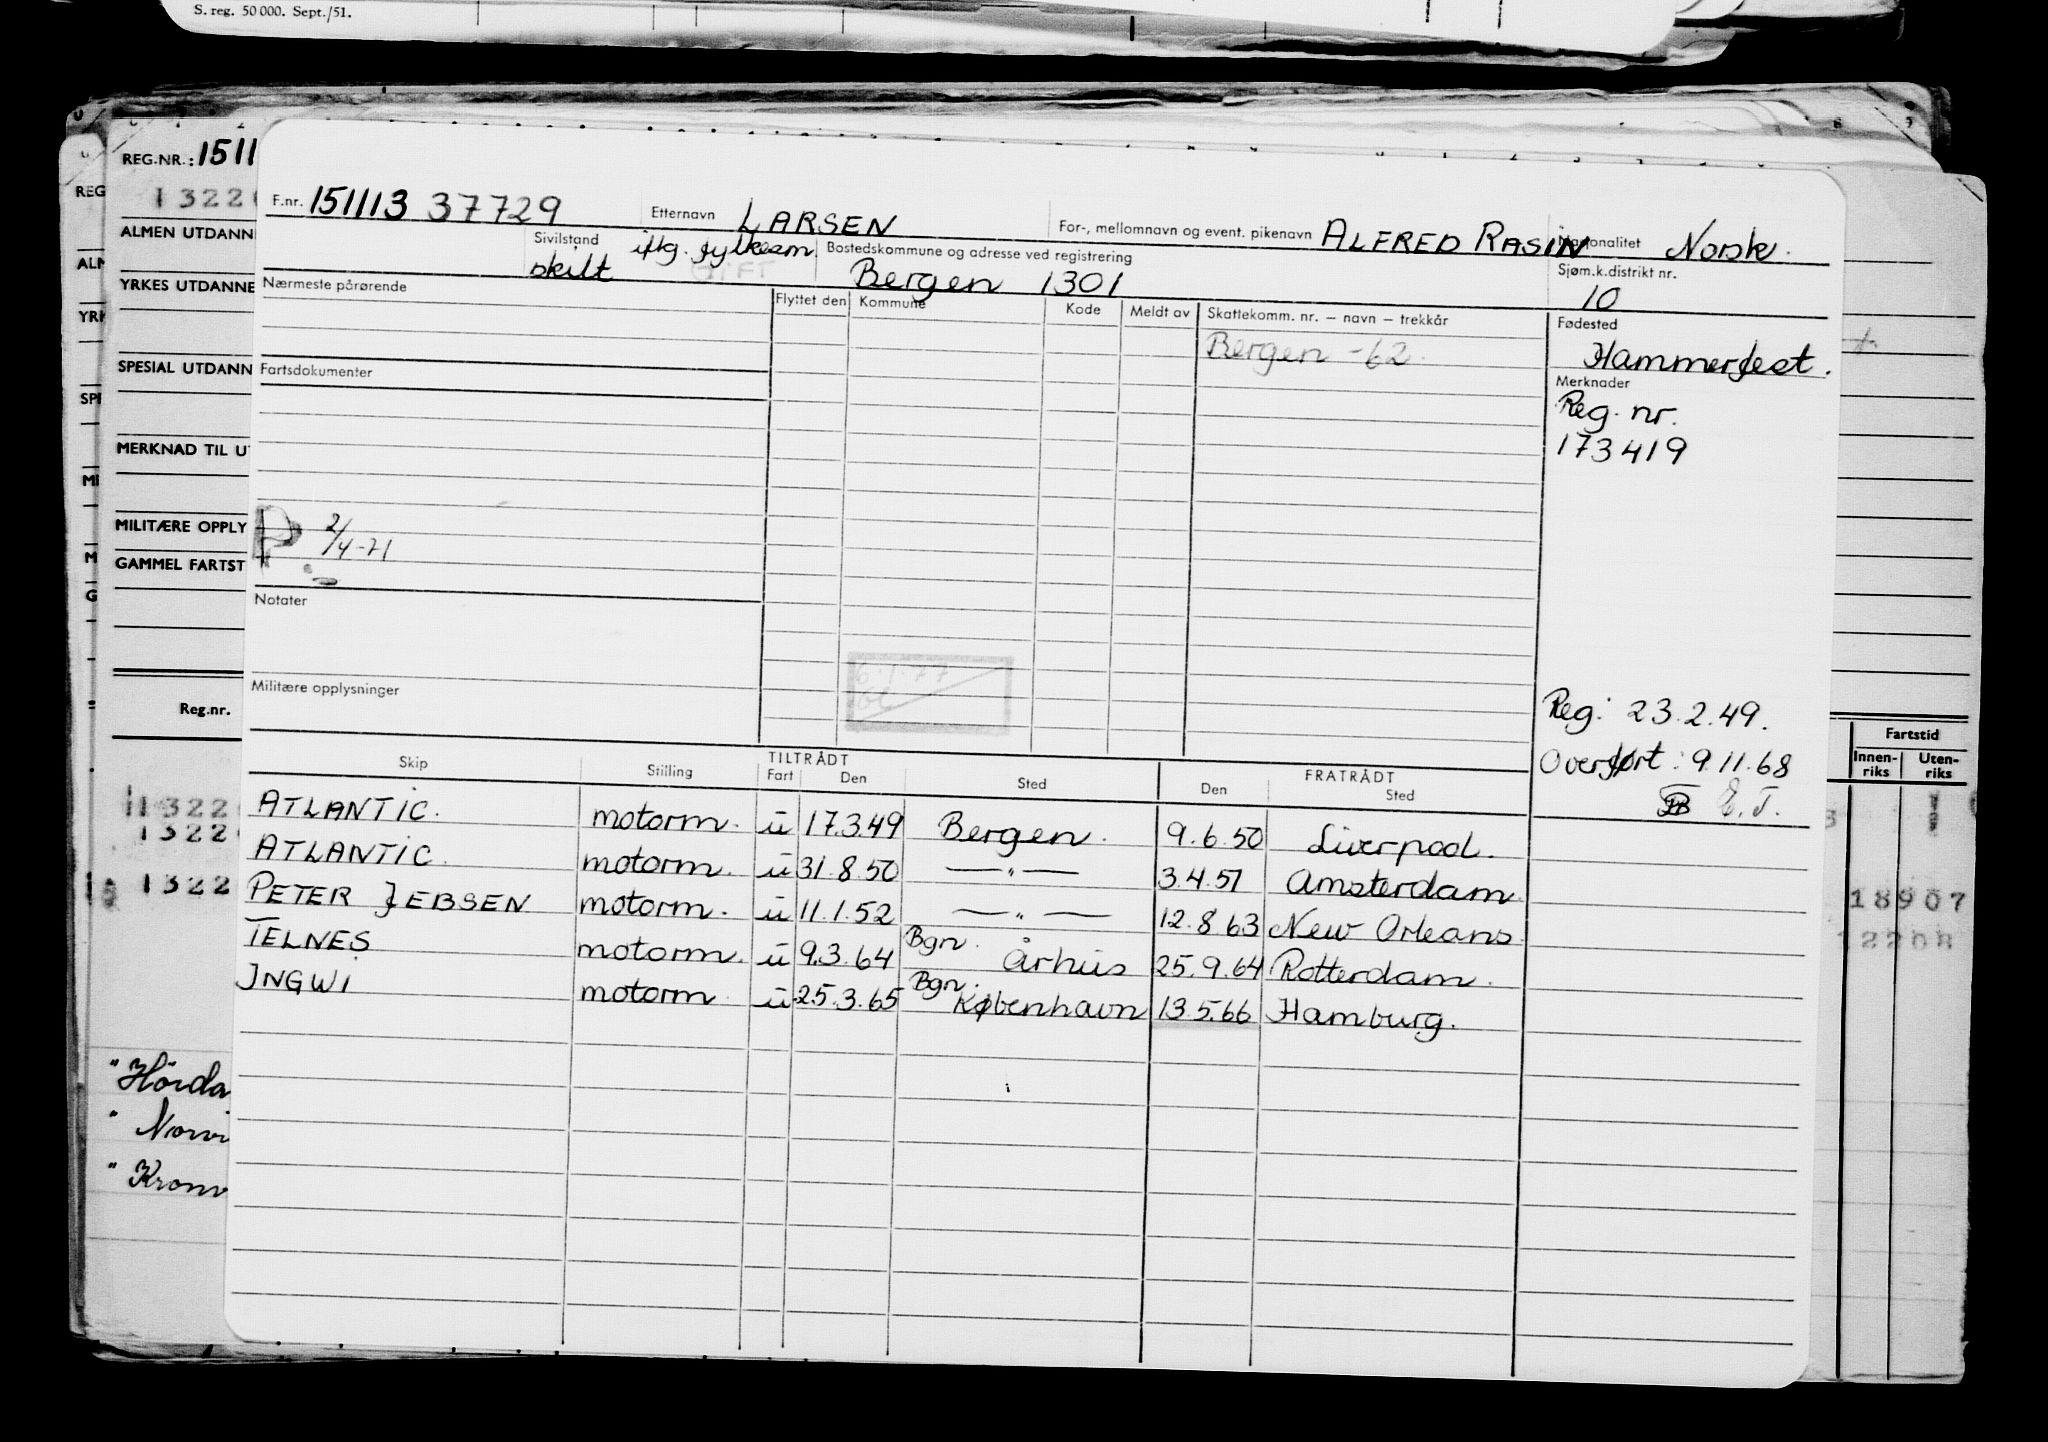 S. reg. 50 000. Sept./51.
REG.NR.: 1511
1322
REG
ALMEN UTDANN
YRKES UTDANNE
SPESIAL UTDANN
MERKNAD TIL U
MILITÆRE OPPLY
GAMMEL FARTST
Reg.nr.
F.nr. 151113 37729 Etternavn LARSEN For-, mellomnavn og event. pikenavn ALFRED RASIN Nasjonalitet Norsk.
Sivilstand skilt iflg. fylkesm. GIFT Bostedskommune og adresse ved registrering Bergen 1301 Sjøm.k.distrikt nr. 10
Nærmeste pårørende Flyttet den Kommune Kode Meldt av Skattekomm. nr. – navn – trekkår Fødested
Bergen -62. Hammerfest.
Fartsdokumenter Merknader
Reg. nr.
173419
P 2/4-71
Notater
6.1.77
Militære opplysninger
Reg: 23.2.49.
Overført: 9.11.68
E.T.
Fartstid
Innen-riks Uten-riks
Skip Stilling TILTRÅDT Fart Den Sted FRATRÅDT Den Sted
ATLANTIC. motorm. u 17.3.49 Bergen. 9.6.50 Liverpool.
ATLANTIC. motorm. u 31.8.50 —"— 3.4.51 Amsterdam
PETER JEBSEN motorm. u 11.1.52 —"— 12.8.63 New Orleans.
TELNES motorm. u 9.3.64 Bgn. Århus 25.9.64 Rotterdam.
INGWI motorm. u 25.3.65 Bgn. København 13.5.66 Hamburg.
1322
1322
1322
18907
12208
"Hörda
" Norvi
" Kronv